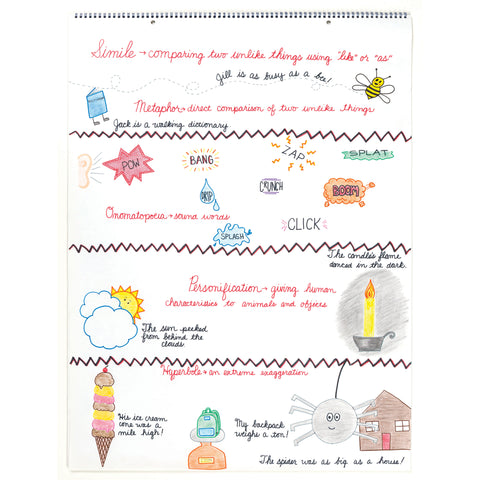 Simile → comparing two unlike things using "like" or "as"
Jill is as busy as a bee!
Metaphor → direct comparison of two unlike things
Jack is a walking dictionary.
POW
BANG
ZAP
SPLAT
DRIP
CRUNCH
BOOM
Onomatopoeia → sound words
SPLASH
CLICK
The candle's flame
danced in the dark.
Personification → giving human
characteristics to animals and objects
The sun peeked
from behind the
clouds.
Hyperbole → an extreme exaggeration
His ice cream
cone was a
mile high!
My backpack
weighs a ton!
The spider was as big as a house!